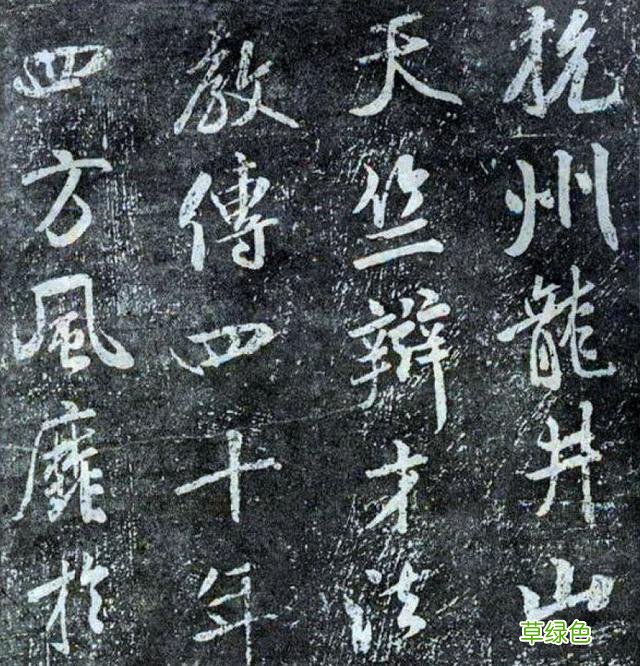 杭州龍井山
天竺辯才法
教傳四十年
四方風靡於
草绿色